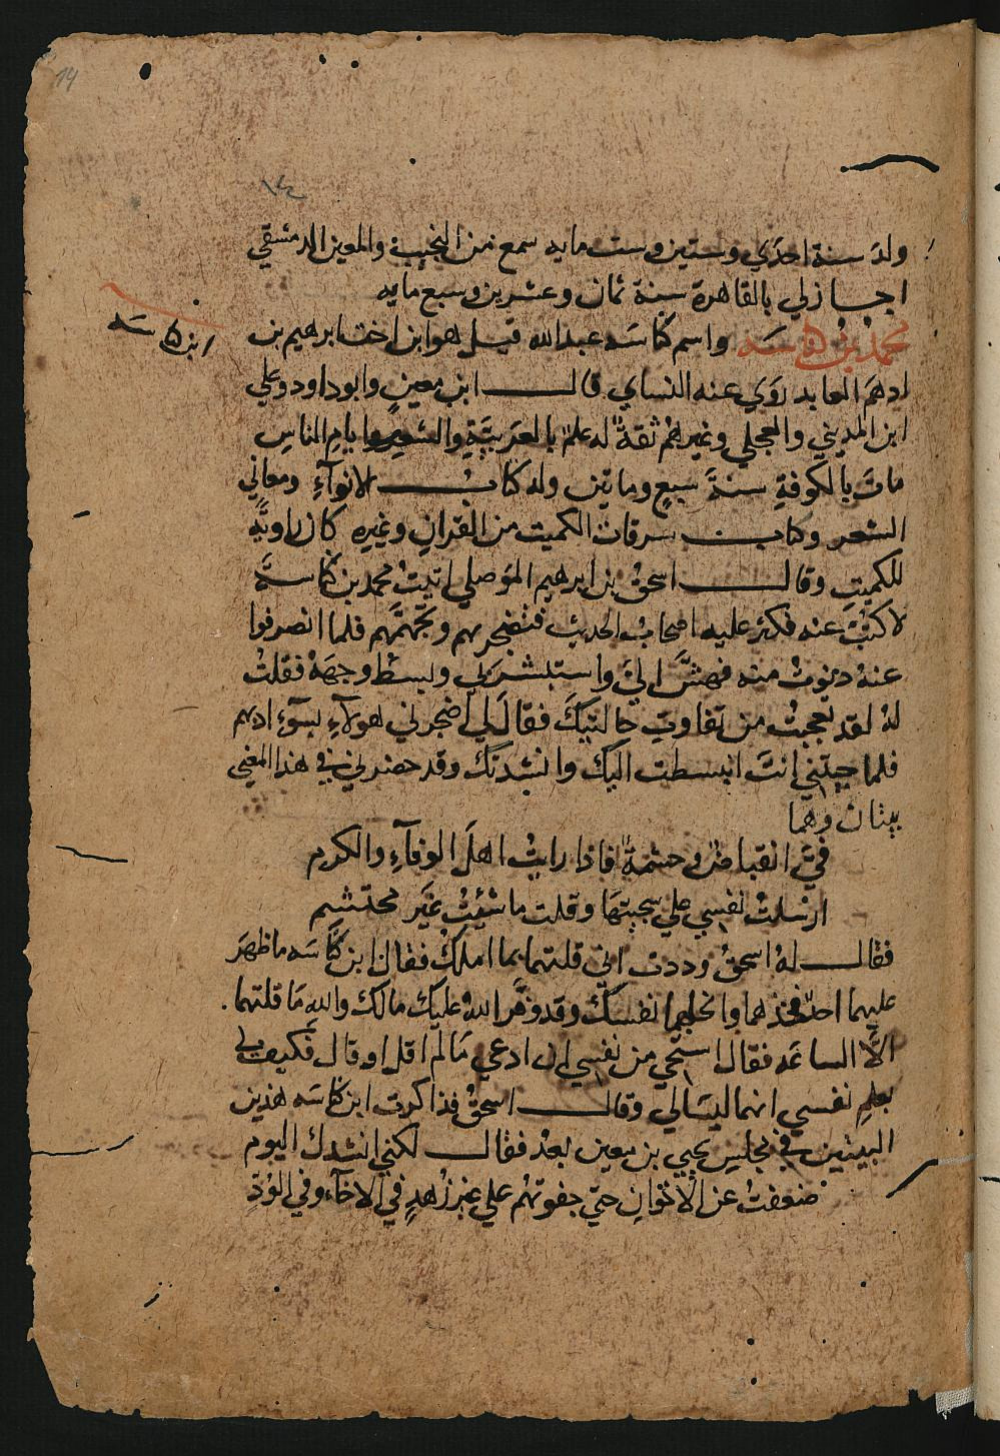 14
١٤
ولد سنة احدي وستين وست مايه سمع من النجيب والمعين الدمشقي
اجازلي بالقاهرة سنة ثمان وعشرين وسبع مايه
محمد بن كناسه واسم كناسه عبدالله قيل هو ابن اخت ابرهيم بن
ابن كناسه
ادهم العابد روي عنه النساي قال ابن معين وابو داود وعلي
ابن المديني والعجلي وغيرهم ثقة له علم بالعربية والشعر وايام الناس
مات بالكوفة سنة سبع وماتين وله كتاب الانوآء ومعاني
الشعر وكتاب سرقات الكميت من القران وغيره كان راوية
للكميت وقال اسحق بن ابرهيم الموصلي اتيت محمد بن كناسة
لاكتب عنه فكثر عليه اصحاب الحديث فتضجر بهم وتجهمهم فلما انصرفوا
عنه دنوت منه فهش الي واستبشر بي وبسط وجهه فقلت
له لقد تعجبت من تفاوت حالتيك فقال لي اضجرني هولآء بسوء ادبهم
فلما جيتني انت انبسطت اليك وانشدتك وقد حضرني في هذا المعني
بيتان وهما
في انقباض وحشمة فاذا رايت اهل الوفآء والكرم
ارسلت نفسي علي سجيتها وقلت ما شيت غير محتشم
فقال له اسحق وددت اني قلتهما بما املك فقال ابن كناسه ما ظهر
عليهما احد فخذهما وانحلهما نفسك وقد وفر الله عليك مالك والله ما قلتهما
الا الساعه فقال استحي من نفسي ان ادعي مالم اقل او قال فكيف لي
بعلم نفسي انهما ليسا لي وقال اسحق فذاكرت ابن كناسه هذين
البيتين في مجلس يحيي بن معين بعد فقال لكني انشدك اليوم
ضعفت عن الاخوان حتي جفوتهم علي غير زهد في الاخآء وفي الود